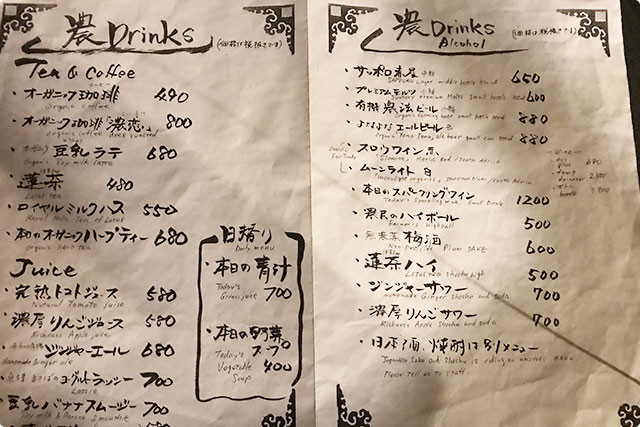 濃 Drinks
(価格は税抜きです)
Tea & Coffee
・オーガニック珈琲 490
Organic coffee
・オーガニック珈琲「濃恋」 800
・豆乳ラテ 680
Organic Soy milk latte
・蓮茶 480
Lotus tea
・ロイヤルミルクハス 550
Royal Milk Tea of Lotus
・本日のオーガニックハーブティー 680
Organic herb tea
Juice
・完熟トマトジュース 580
Natural Tomato juice
・濃厚りんごジュース 580
Richness Apple juice
ジンジャーエール 680
Homemade Ginger ale
ヨーグルトラッシー 700
Lassie
・豆乳バナナスムージー 700
Soy milk & Banana Smoothie
日替り
Daily menu
・本日の青汁
Today's
Green juice 700
・本日の野菜
Today's スープ
Vegetable 400
Soup
濃 Drinks
Alcohol
(価格は税抜きです)
・サッポロ赤星 中瓶 650
SAPPORO Lager middle bottle
・プレミアムモルツ 小瓶 600
Suntory Premium Malts Small bottle
・有機農法ビール 小瓶 880
Organic farming beer small bottle
・よなよなエールビール 缶 880
・スロウワイン 赤
"Slowine" Merlot Red / South Africa
・ムーンライト 白
"Moonlight organics" / South Africa
Wine
・本日のスパークリングワイン 1200
Today's Sparkling wine Small Bottle
・農民のハイボール 500
Farmer's Highball
・無農薬 梅酒 600
Non-Pesticide Plum SAKE
・蓮茶ハイ 500
Lotus tea Shochu high
・ジンジャーサワー 700
Homemade Ginger Shochu and soda
・濃厚りんごサワー 700
Richness Apple Shochu and soda
・日本酒、焼酎は別メニュー
Japanese Sake and Shochu is ruling on another MENU
Please tell us to staff